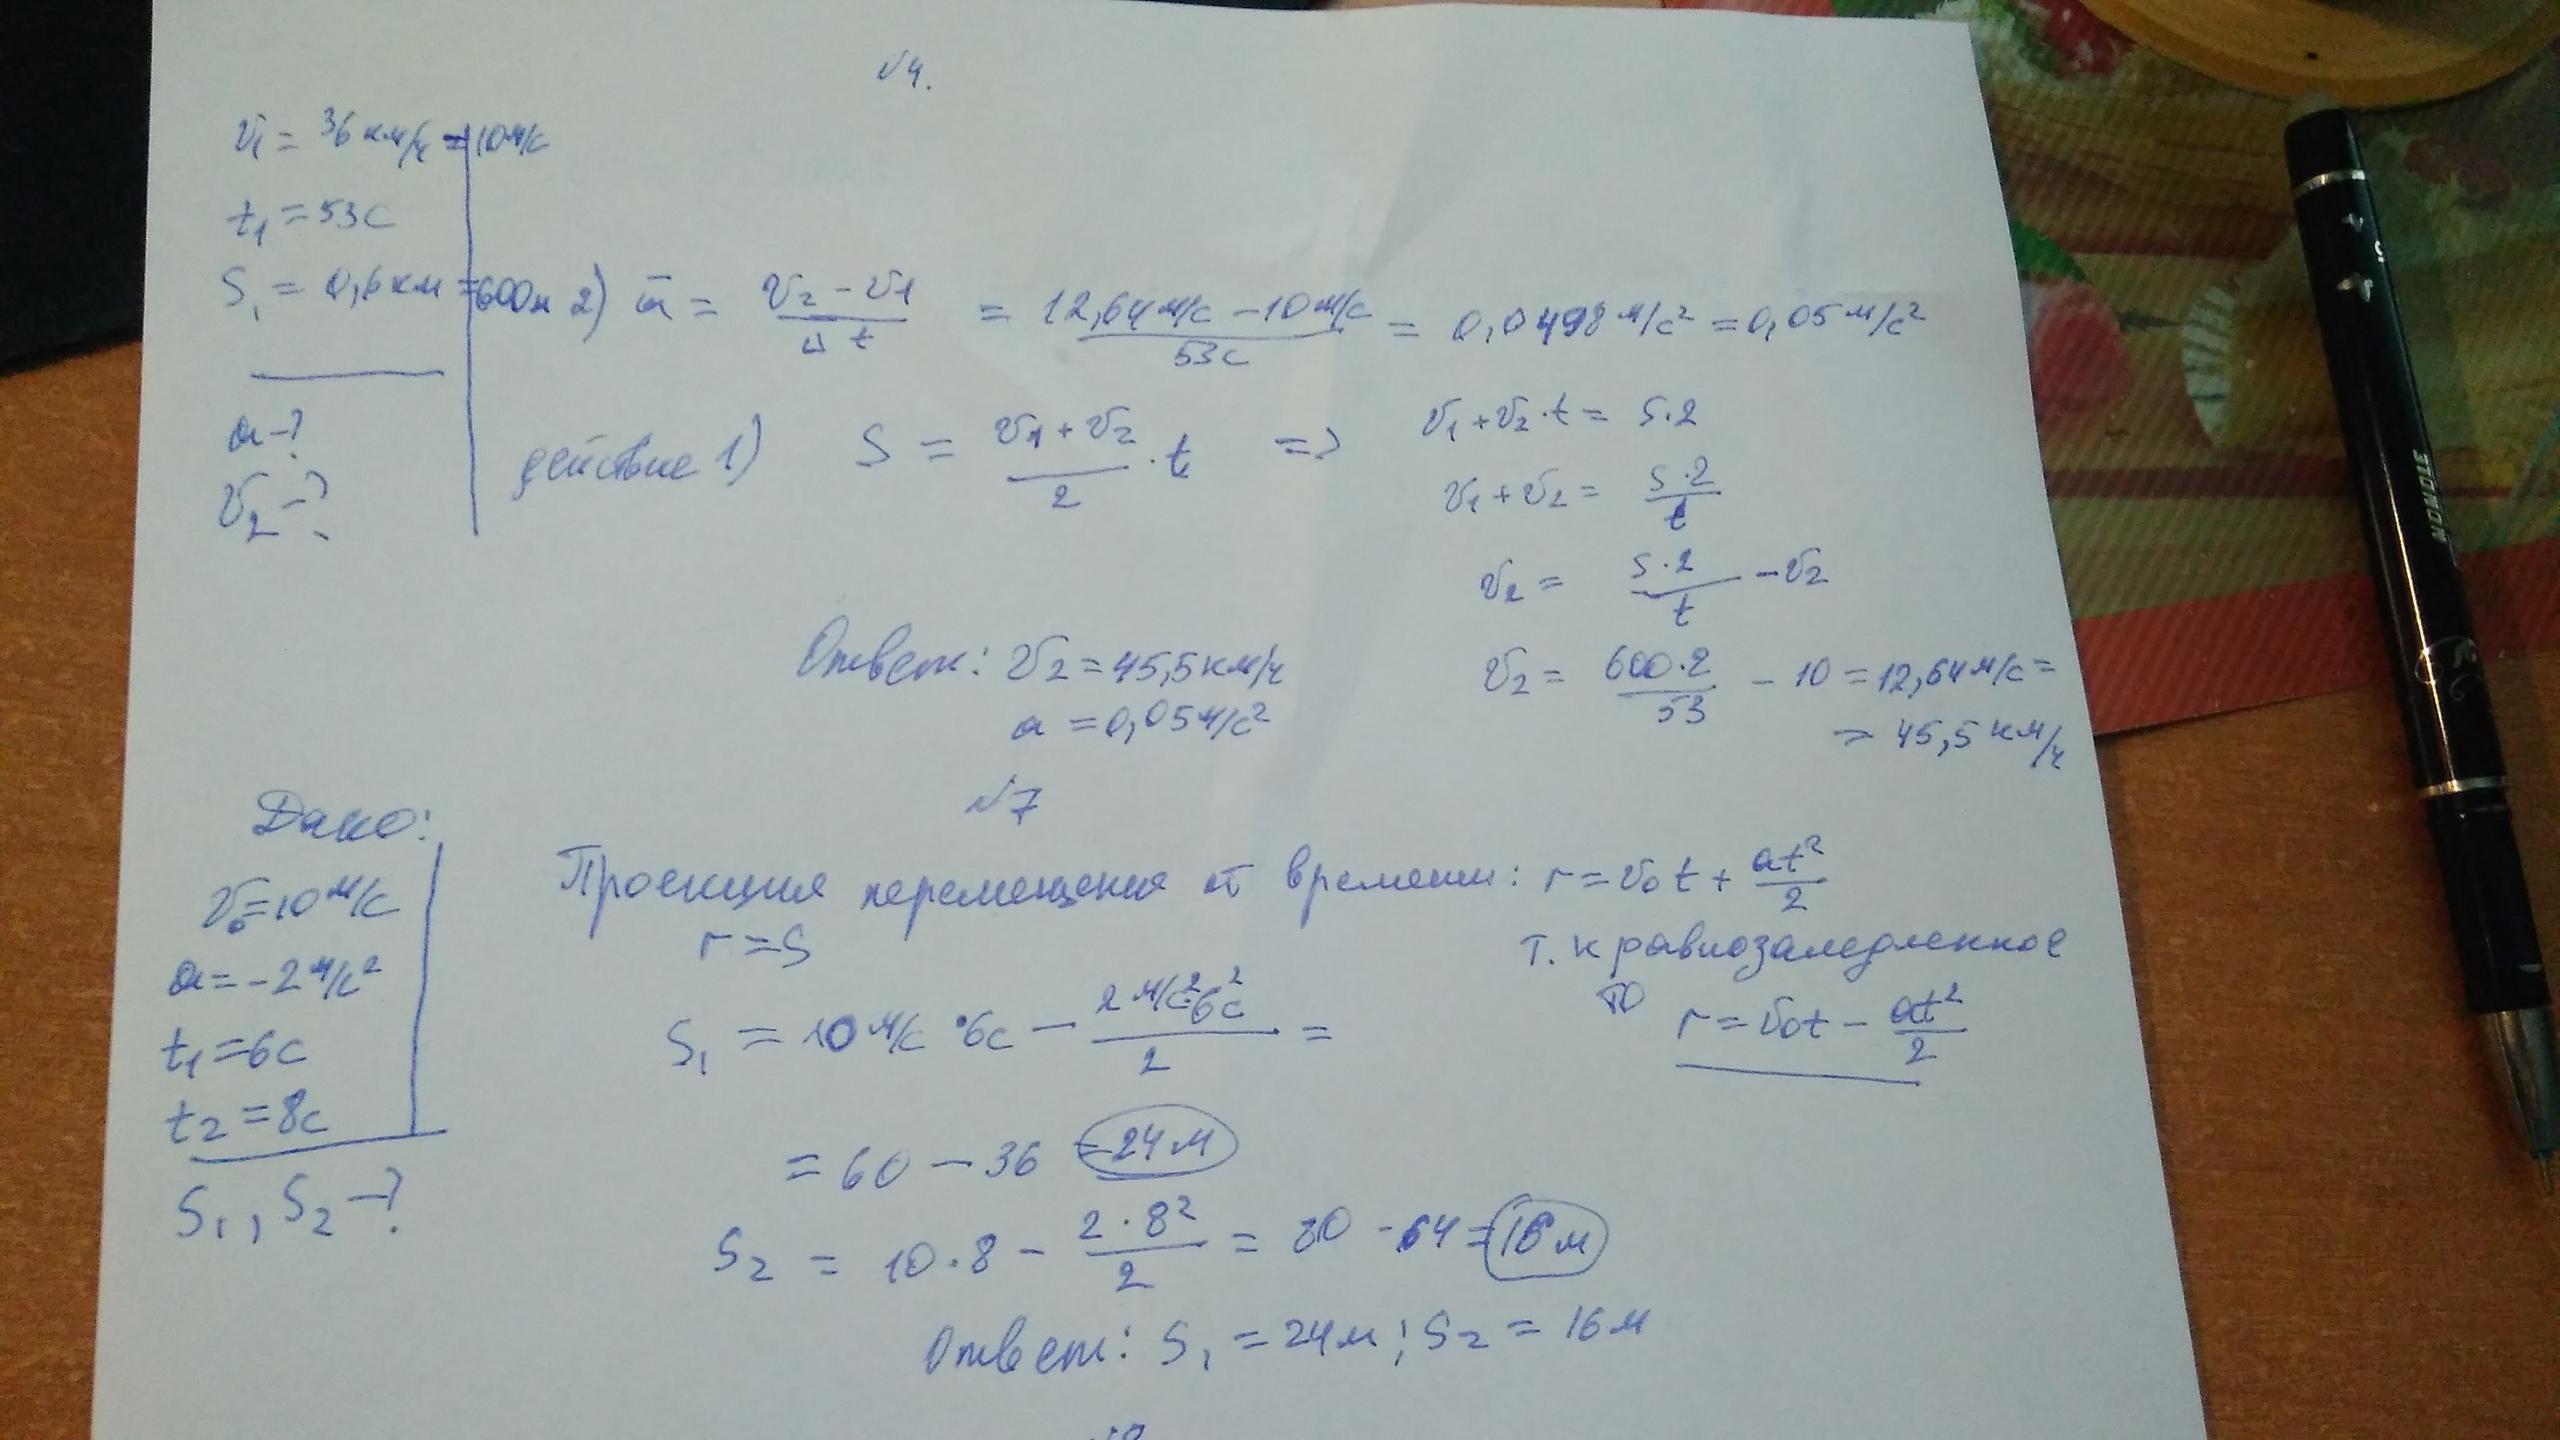 №4.
v₁ = 36 км/ч = 10 м/с
t₁ = 53 с
S₁ = 0,6 км = 600 м
a - ?
v₂ - ?
2) a̅ = (v₂ - v₁)/(Δt) = (12,64 м/с - 10 м/с)/(53 с) = 0,0498 м/с² = 0,05 м/с²
действие 1) S = (v₁ + v₂)/2 · t =>
v₁ + v₂ · t = S·2
v₁ + v₂ = (S·2)/t
v₂ = (S·2)/t - v₂
v₂ = (600·2)/53 - 10 = 12,64 м/с =
= 45,5 км/ч
Ответ: v₂ = 45,5 км/ч
a = 0,05 м/с²
№7
Дано:
v₀ = 10 м/с
a = -2 м/с²
t₁ = 6 с
t₂ = 8 с
S₁, S₂ - ?
Проекция перемещения от времени: r = v₀t + at²/2
r = S
т. к равнозамедленное
то r = v₀t - at²/2
S₁ = 10 м/с · 6с - (2 м/с² · 6с²)/2 =
= 60 - 36 = 24 м
S₂ = 10·8 - (2·8²)/2 = 80 - 64 = 16 м
Ответ: S₁ = 24 м; S₂ = 16 м
MONDLE